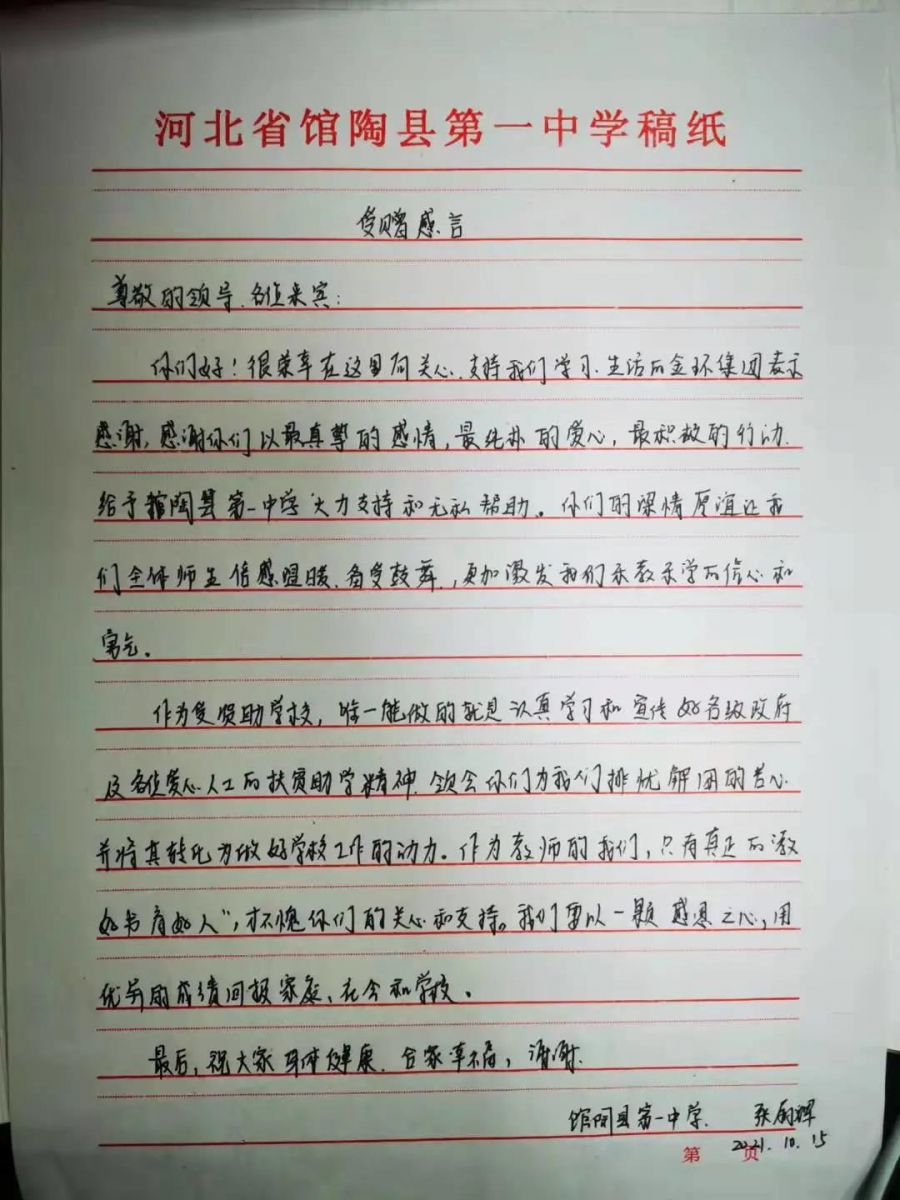 河北省馆陶县第一中学稿纸
受赠感言
尊敬的领导、各位来宾:
你们好!很荣幸在这里向关心、支持我们学习、生活的金环集团表示
感谢,感谢你们以最真挚的感情,最纯朴的爱心,最积极的行动,
给予馆陶县第一中学大力支持和无私帮助。你们的深情厚谊让我
们全体师生倍感温暖、备受鼓舞,更加激发我们乐教乐学的信心和
勇气。
作为受资助学校,唯一能做的就是认真学习和宣传好各级政府
及各位爱心人士的扶贫助学精神,领会你们为我们排忧解困的苦心
并将其转化为做好学校工作的动力。作为教师的我们,只有真正的“教
好书育好人”,才不愧你们的关心和支持。我们要以一颗感恩之心,用
优异的成绩回报家庭、社会和学校。
最后,祝大家身体健康、合家幸福,谢谢.
馆陶县第一中学 张
2021.10.15
第 页